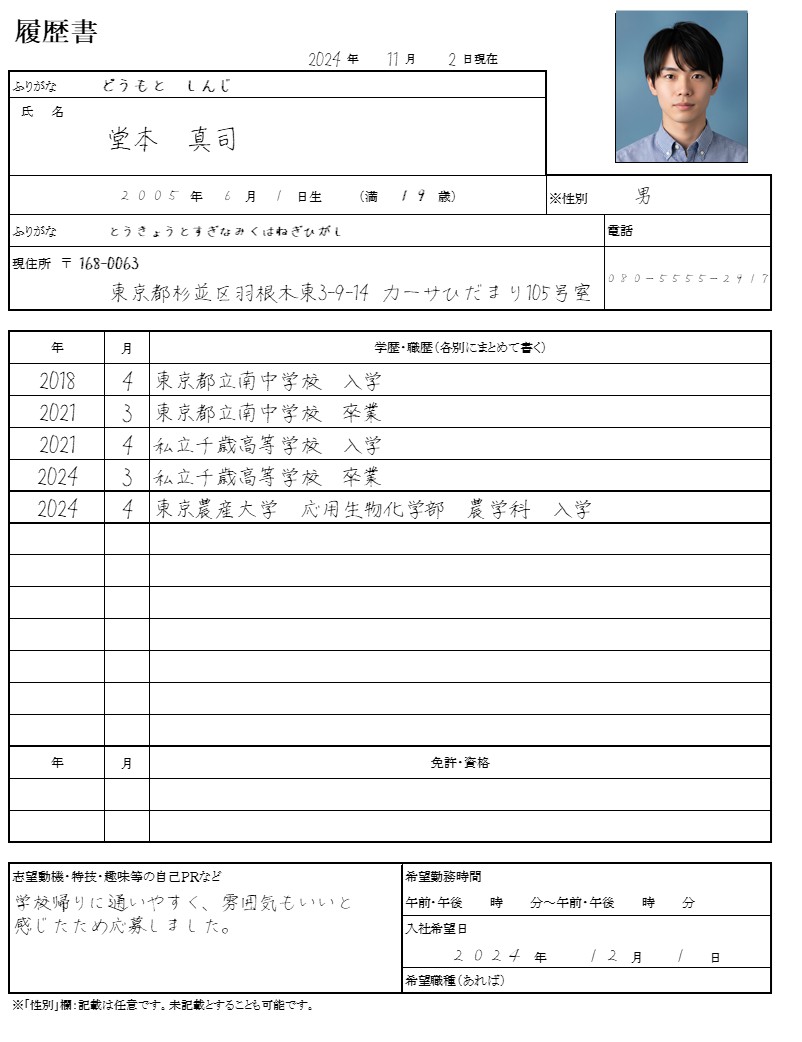 履歴書
2024 年 11 月 2 日現在
ふりがな どうもと しんじ
氏 名
堂本 真司
2005 年 6 月 1 日生 (満 19 歳)
※性別 男
ふりがな とうきょうとすぎなみくはねぎひがし
電話
現住所 〒 168-0063
東京都杉並区羽根木東3-9-14 カーサひだまり105号室
080-5555-2917
年 月 学歴・職歴(各別にまとめて書く)
2018 4 東京都立南中学校 入学
2021 3 東京都立南中学校 卒業
2021 4 私立千歳高等学校 入学
2024 3 私立千歳高等学校 卒業
2024 4 東京農産大学 応用生物化学部 農学科 入学
年 月 免許・資格
志望動機・特技・趣味等の自己PRなど
学校帰りに通いやすく、雰囲気もいいと
感じたため応募しました。
希望勤務時間
午前・午後 時 分~午前・午後 時 分
入社希望日
2024 年 12 月 1 日
希望職種(あれば)
※「性別」欄:記載は任意です。未記載とすることも可能です。